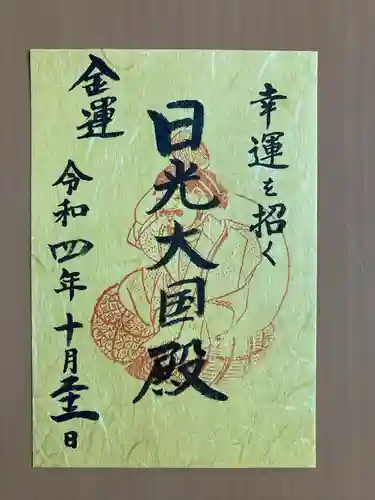 幸運を招く
日光大国殿
金運
令和四年十月二十一日